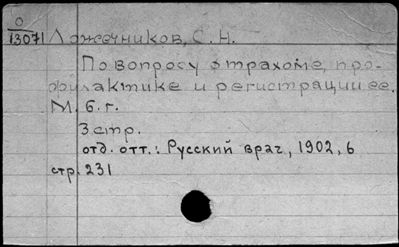 О
13071 Ложечников, С. Н.
По вопросу о трахоме, про-
филактике и регистрации ее.
М. б. г.
3 стр.
отд. отт.: Русский врач, 1902, 6
стр. 231